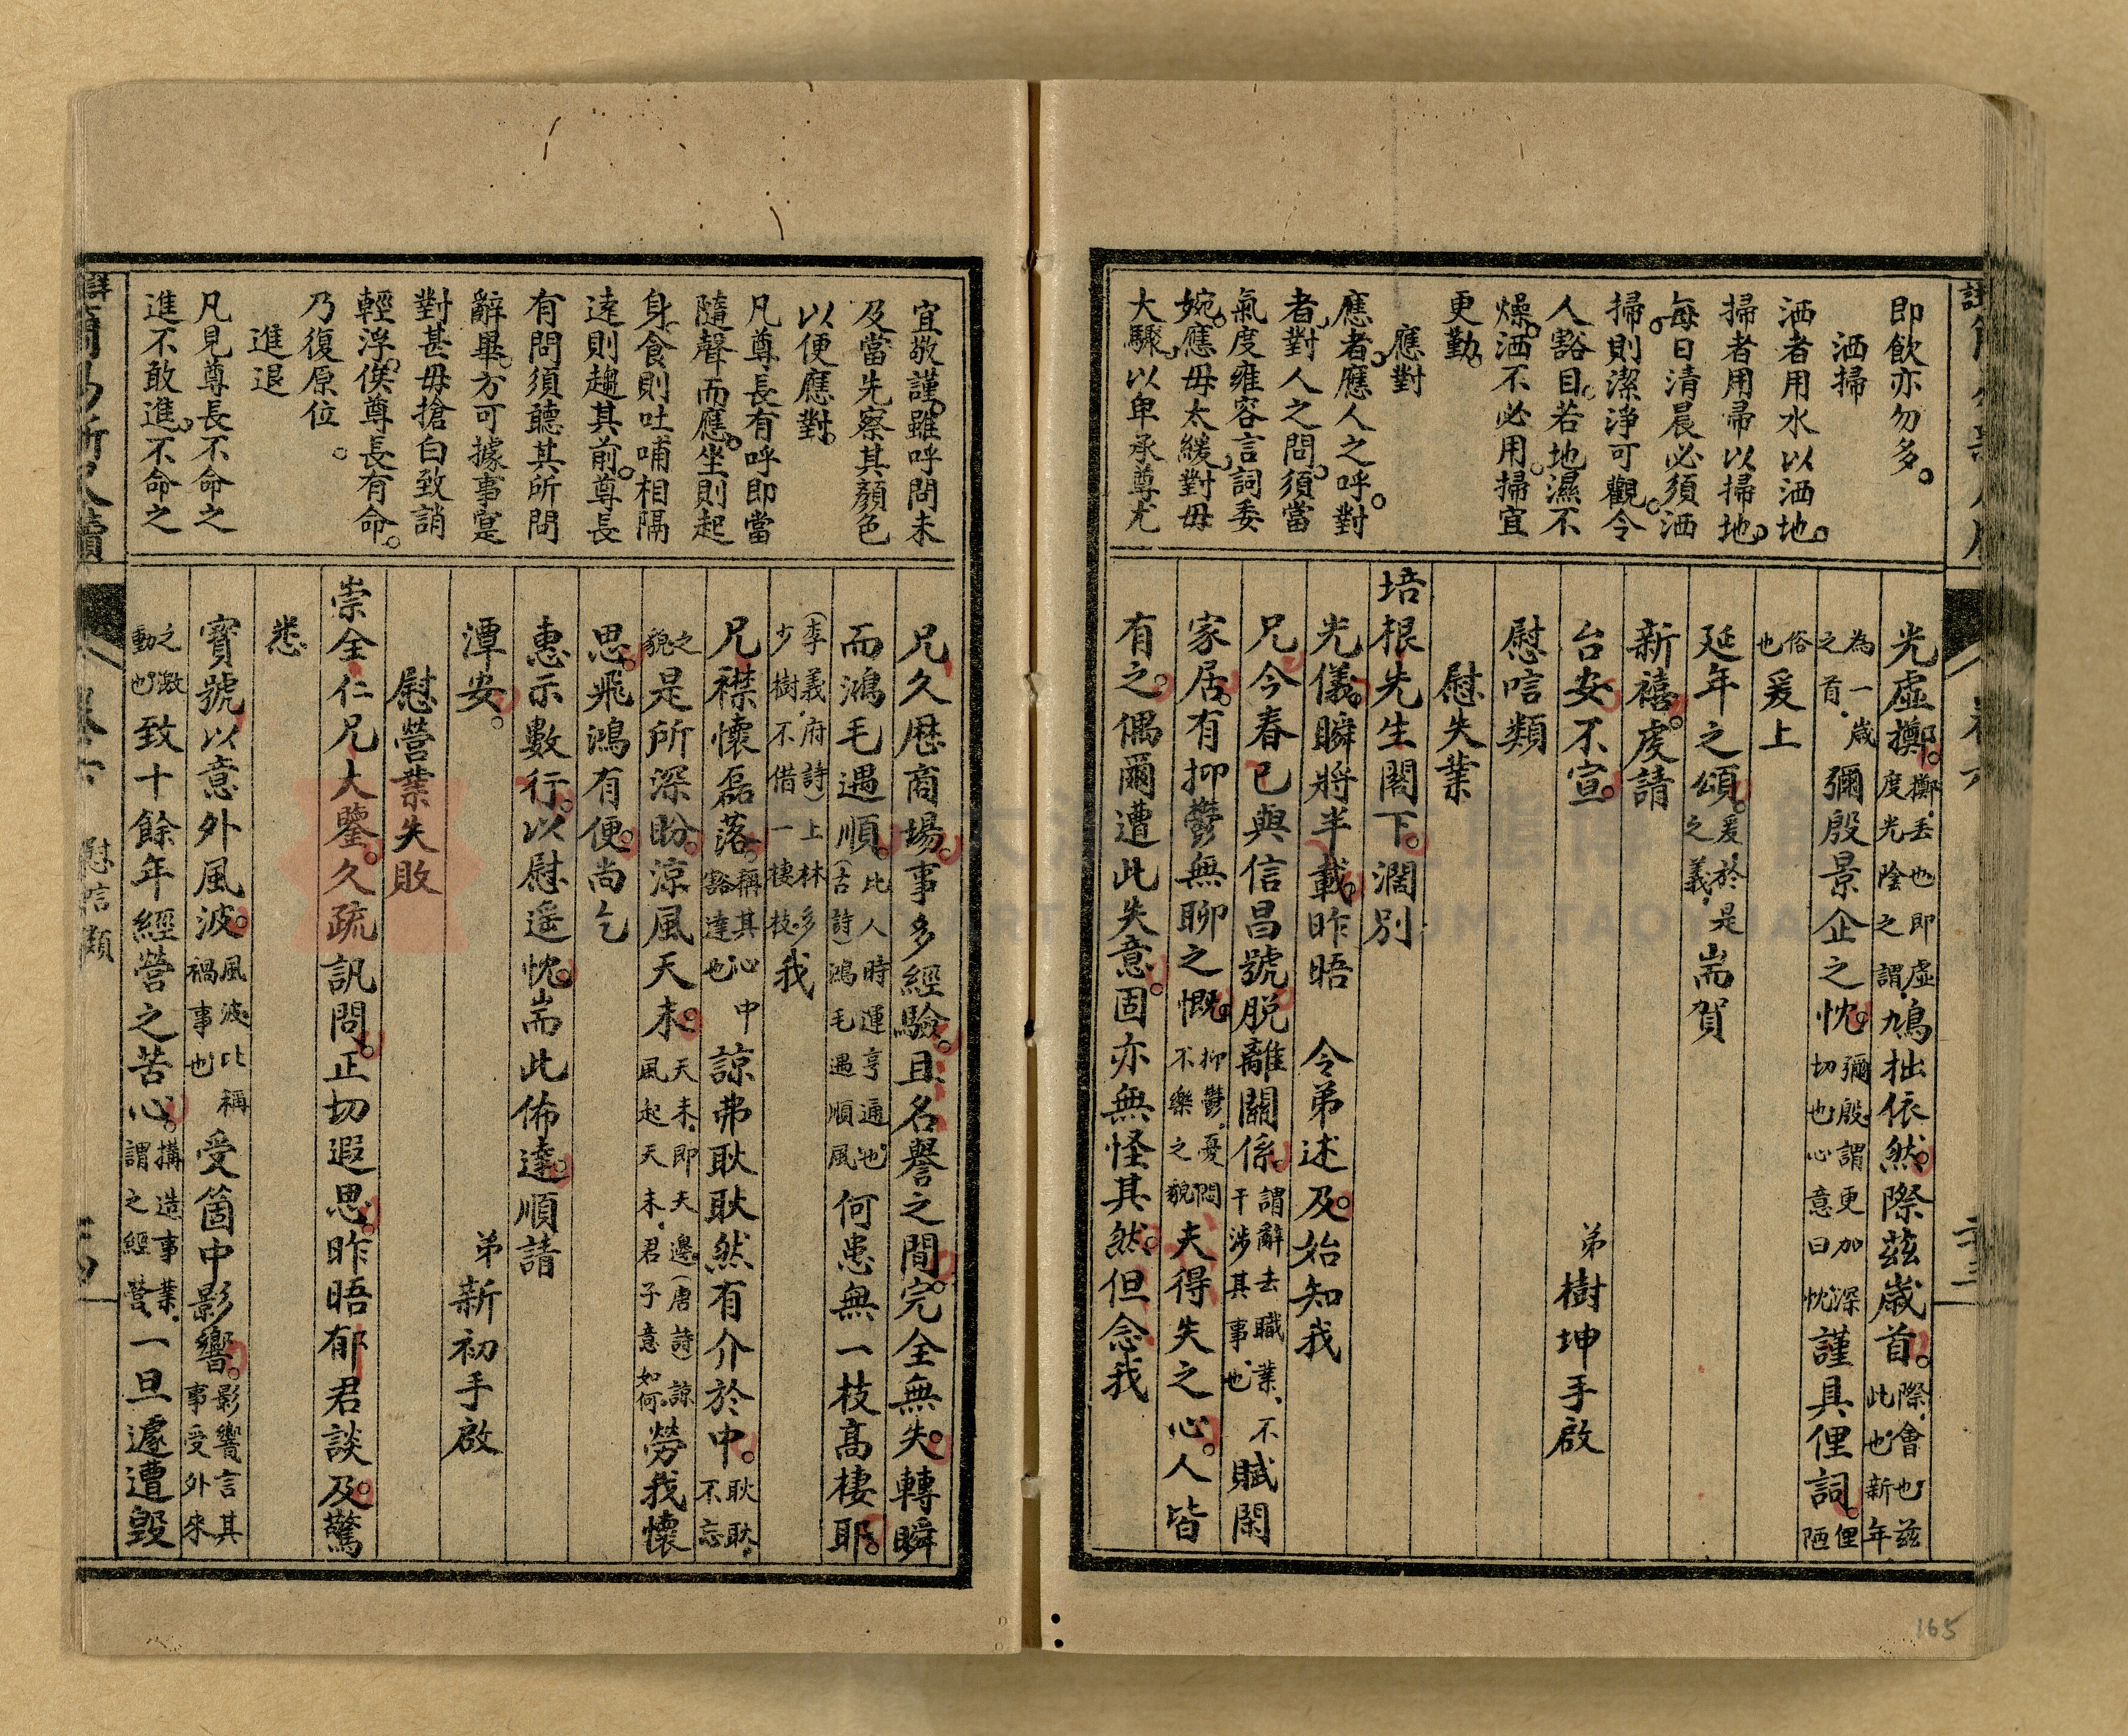 即飲亦勿多。
洒掃
洒者用水以洒地。
掃者用帚以掃地。
每日清晨必須洒
掃。則潔淨可觀。令
人豁目。若地濕不
燥。洒不必用。掃宜
更勤。
應對
應者。應人之呼。對
者。對人之問。須當
氣度雍容。言詞委
婉。應毋太緩。對毋
大驟。以卑承尊。尤
光虛擲。擲、丟也即虛度光陰之謂、鳩拙依然。際茲歲首。際、會也茲此也、新年
為一歲之首、彌殷景企之忱。彌殷、謂更加深切也、心意曰忱、謹具俚詞。俚陋
俗也爰上
延年之頌。爰、於是之義、耑賀
新禧。虔請
台安。不宣。
弟樹坤手啟
慰唁類
慰失業
培根先生閣下。濶別
光儀。瞬將半載。昨晤　令弟述及。始知我
兄今春已與信昌號脱離關係。謂辭去職業、不干涉其事也、賦閑
家居。有抑鬱無聊之慨。抑鬱、憂悶不樂之貌夫得失之心。人皆
有之。偶爾遭此失意。固亦無怪其然。但念我
165
宜敬謹。雖呼問未
及。當先察其顏色
以便應對。
凡尊長有呼。即當
隨聲而應。坐則起
身。食則吐哺。相隔
遠則趨其前。尊長
有問。須聽其所問
辭畢。方可據事寔
對。甚毋搶白致誚
輕浮。俟尊長有命。
乃復原位。
進退
凡見尊長。不命之
進不敢進。不命之
兄久歷商場。事多經驗。且名譽之間。完全無失。轉瞬
而鴻毛遇順。（古詩）鴻毛遇順風比人時運亨通也、何患無一枝高棲耶。
（李義府詩）上林多少樹、不借一棲枝、我
兄襟懷磊落。稱其心中豁達也諒弗耿耿然有介於中。耿耿、不忘
之貌是所深盼。涼風天末。天末、即天邊、（唐詩）諒風起天末、君子意如何、勞我懷
思。飛鴻有便。尚乞
惠示數行。以慰遥忱。耑此佈達。順請
潭安。
弟新初手啟
慰營業失敗
崇全仁兄大鑒。久疏訊問。正切遐思。昨晤郁君談及。驚
悉
寶號以意外風波。風波比稱禍事也受箇中影響。影響言其事受外來
之激動也、致十餘年經營之苦心。搆造事業、謂之經營、一旦遽遭毀
慰唁類